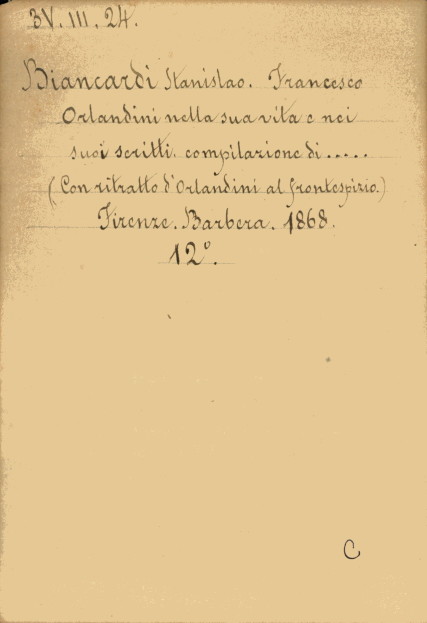 3V. III. 24.
Biancardi Stanislao. Francesco
Orlandini nella sua vita e nei
suoi scritti. compilazione di .....
(Con ritratto d'Orlandini al frontespizio.)
Firenze. Barbera. 1868.
12°.
C